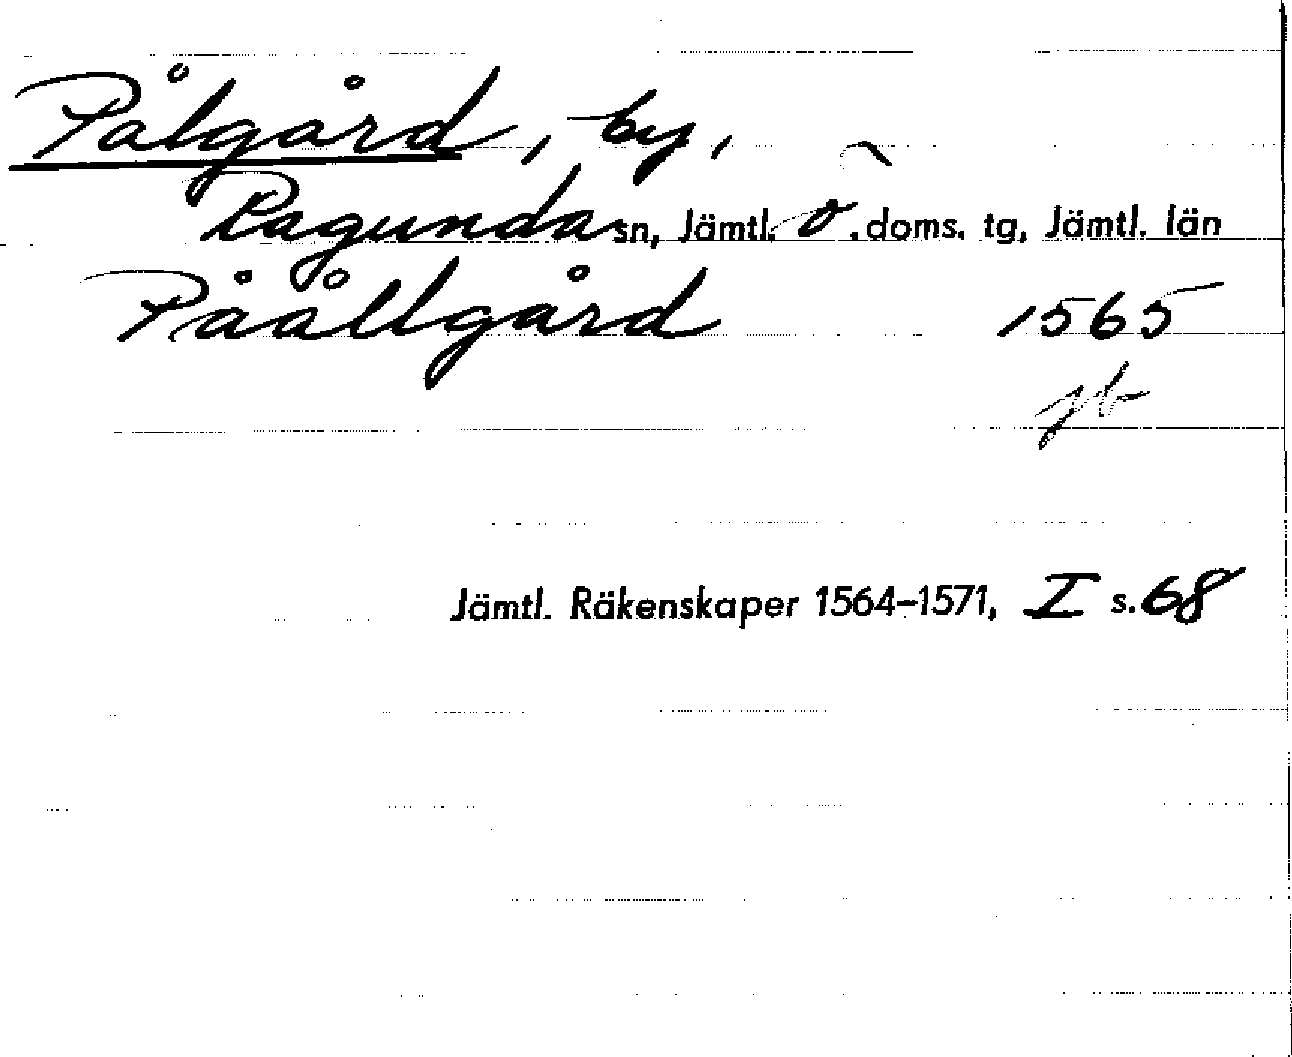 Pålgård, by,
Ragunda sn, Jämtl. ö. doms. tg, Jämtl. län
Påållgård 1565
jb
Jämtl. Räkenskaper 1564-1571, I s. 68